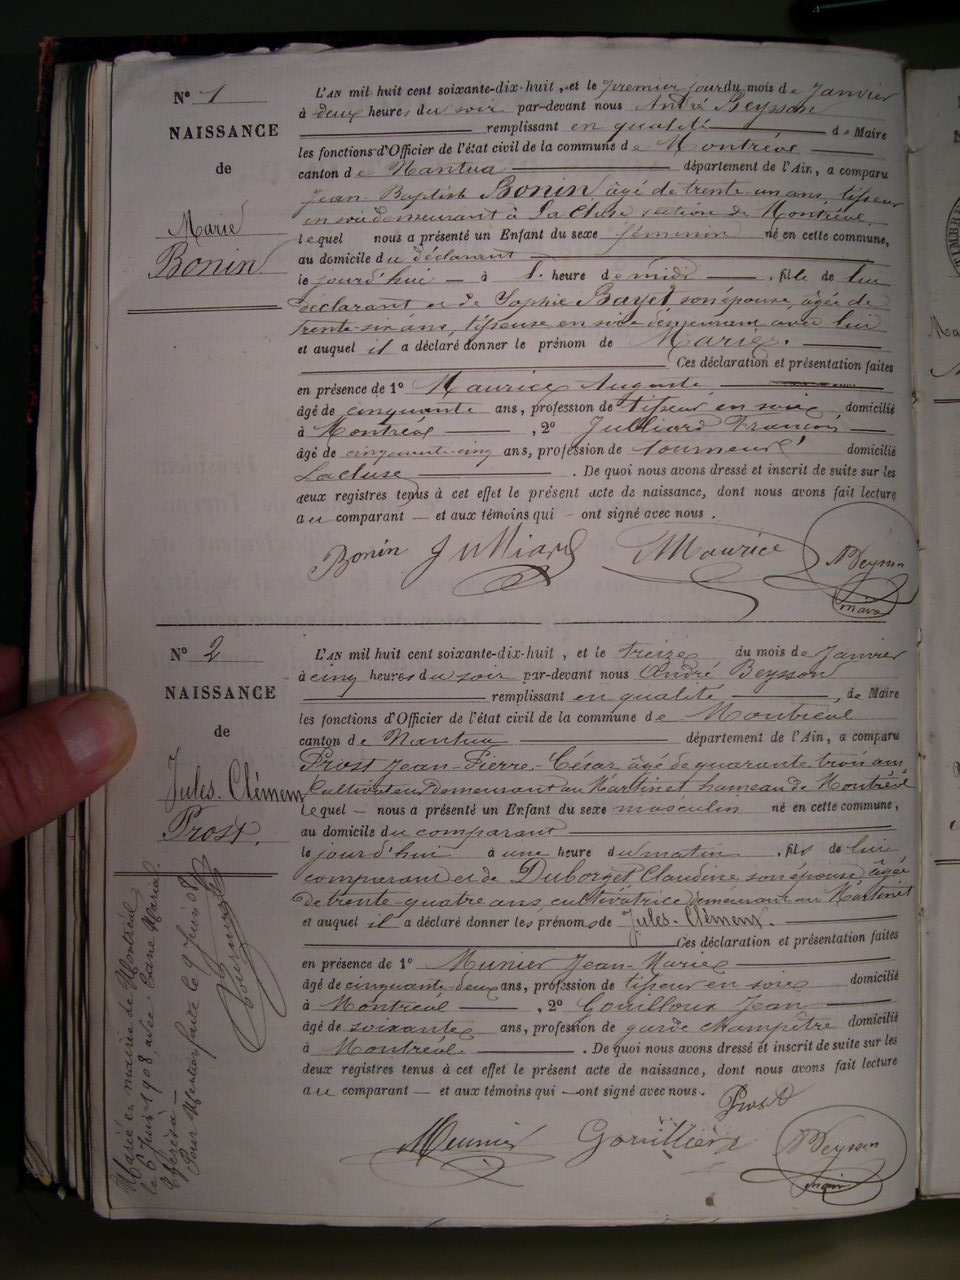 N° 1
NAISSANCE
de
Marie
Bonin
L'AN mil huit cent soixante-dix-huit, et le premier jour du mois de Janvier
à deux heures du soir par-devant nous André Beysson
remplissant en qualité de Maire
les fonctions d'Officier de l'état civil de la commune de Montréal
canton de Nantua département de l'Ain, a comparu
Jean Baptiste Bonin âgé de trente-un ans, tisseur
en soie demeurant à La Cluse section de Montréal
lequel nous a présenté un Enfant du sexe féminin né en cette commune,
au domicile du déclarant
le jourd'hui à heure de midi, fille de lui
déclarant et de Sophie Bayet son épouse, âgée de
trente-six ans, tisseuse en soie demeurant avec lui
et auquel il a déclaré donner le prénom de Marie.
Ces déclaration et présentation faites
en présence de 1° Maurice Auguste
âgé de cinquante ans, profession de tisseur en soie domicilié
à Montréal, 2° Julliard François
âgé de cinquante-cinq ans, profession de tourneur domicilié
Lacluse. De quoi nous avons dressé et inscrit de suite sur les
deux registres tenus à cet effet le présent acte de naissance, dont nous avons fait lecture
au comparant — et aux témoins qui — ont signé avec nous.
Bonin Julliard Maurice Beysson
maire
N° 2
NAISSANCE
de
Jules-Clément
Prost.
L'AN mil huit cent soixante-dix-huit, et le treize du mois de Janvier
à cinq heures du soir par-devant nous André Beysson
remplissant en qualité, de Maire
les fonctions d'Officier de l'état civil de la commune de Montréal
canton de Nantua département de l'Ain, a comparu
Prost Jean-Pierre-César âgé de quarante trois ans
Cultivateur demeurant au Martinet hameau de Montréal
lequel — nous a présenté un Enfant du sexe masculin né en cette commune,
au domicile du comparant
le jourd'hui à une heure du matin, fils de lui
comparant et de Duborget Claudine son épouse âgée
de trente-quatre ans, cultivatrice demeurant au Martinet
et auquel il a déclaré donner les prénoms de Jules-Clément.
Ces déclaration et présentation faites
en présence de 1° Munier Jean-Marie
âgé de cinquante-deux ans, profession de tisseur en soie domicilié
à Montréal, 2° Gouilloux Jean
âgé de soixante ans, profession de garde champêtre domicilié
à Montréal. De quoi nous avons dressé et inscrit de suite sur les
deux registres tenus à cet effet le présent acte de naissance, dont nous avons fait lecture
au comparant — et aux témoins qui — ont signé avec nous.
Prost
Meunier Beysson
maire
Marié en mairie de Montréal
le 6 Juin 1908, avec Marie
Thérésa —
Pour Mention faite le 9 Juin 08